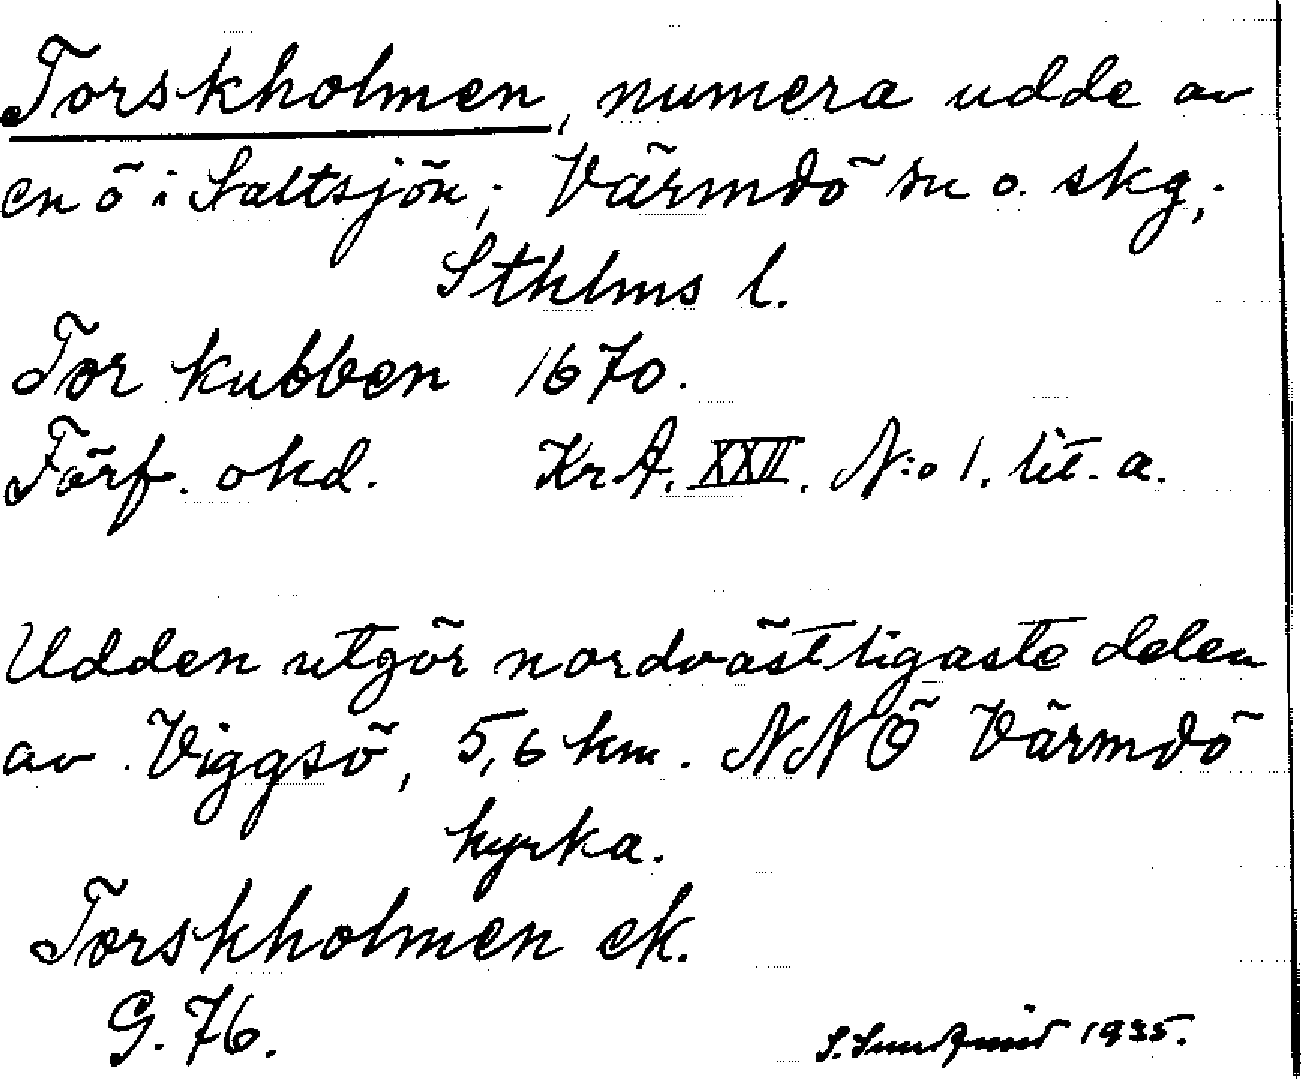 Torskholmen, numera udde av
en ö i Saltsjön; Värmdö sn o. skg;
Sthlms l.
Tor kubben 1670.
Förf. okd. Kr A. XXII. N:o 1. lit. a.
Udden utgör nordvästligaste delen
av Viggsö, 5,6 km. NNÖ Värmdö
kyrka.
Torskholmen ek.
G. 76.
S. Sundqvist 1935.